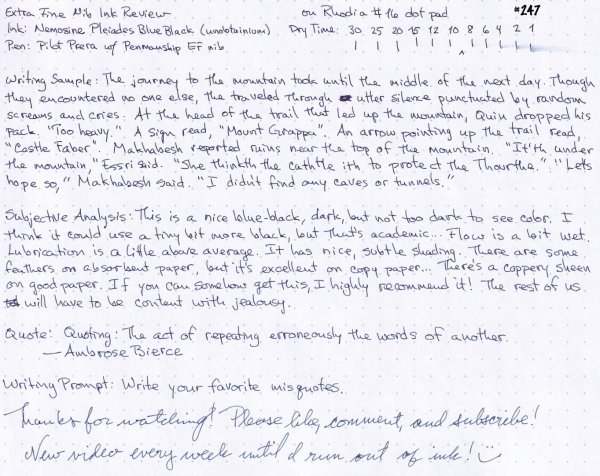 Extra Fine Nib Ink Review on Rhodia #16 dot pad #247
Ink: Nemosine Pleiades Blue Black (unobtainium) Dry Time: 30 25 20 15 12 10 8 6 4 2 1
Pen: Pilot Prera w/ Penmanship EF nib
Writing Sample: The journey to the mountain took until the middle of the next day. Though
they encountered no one else, the traveled through utter silence punctuated by random
screams and cries. At the head of the trail that led up the mountain, Quin dropped his
pack. "Too heavy." A sign read, "Mount Grappa". An arrow pointing up the trail read,
"Castle Faber". Makhabesh reported ruins near the top of the mountain. "It'th under
the mountain," Essri said. "She thinkth the cathtle ith to protect the Thourthe." "Let's
hope so," Makhabesh said. "I didn't find any caves or tunnels."
Subjective Analysis: This is a nice blue-black, dark, but not too dark to see color. I
think it could use a tiny bit more black, but that's academic... Flow is a bit wet.
Lubrication is a little above average. It has nice, subtle shading. There are some
feathers on absorbent paper, but it's excellent on copy paper... There's a coppery sheen
on good paper. If you can somehow get this, I highly recommend it! The rest of us
will have to be content with jealousy.
Quote: Quoting: The act of repeating erroneously the words of another.
— Ambrose Bierce
Writing Prompt: Write your favorite misquotes.
Thanks for watching! Please like, comment, and subscribe!
New video every week until I run out of ink!